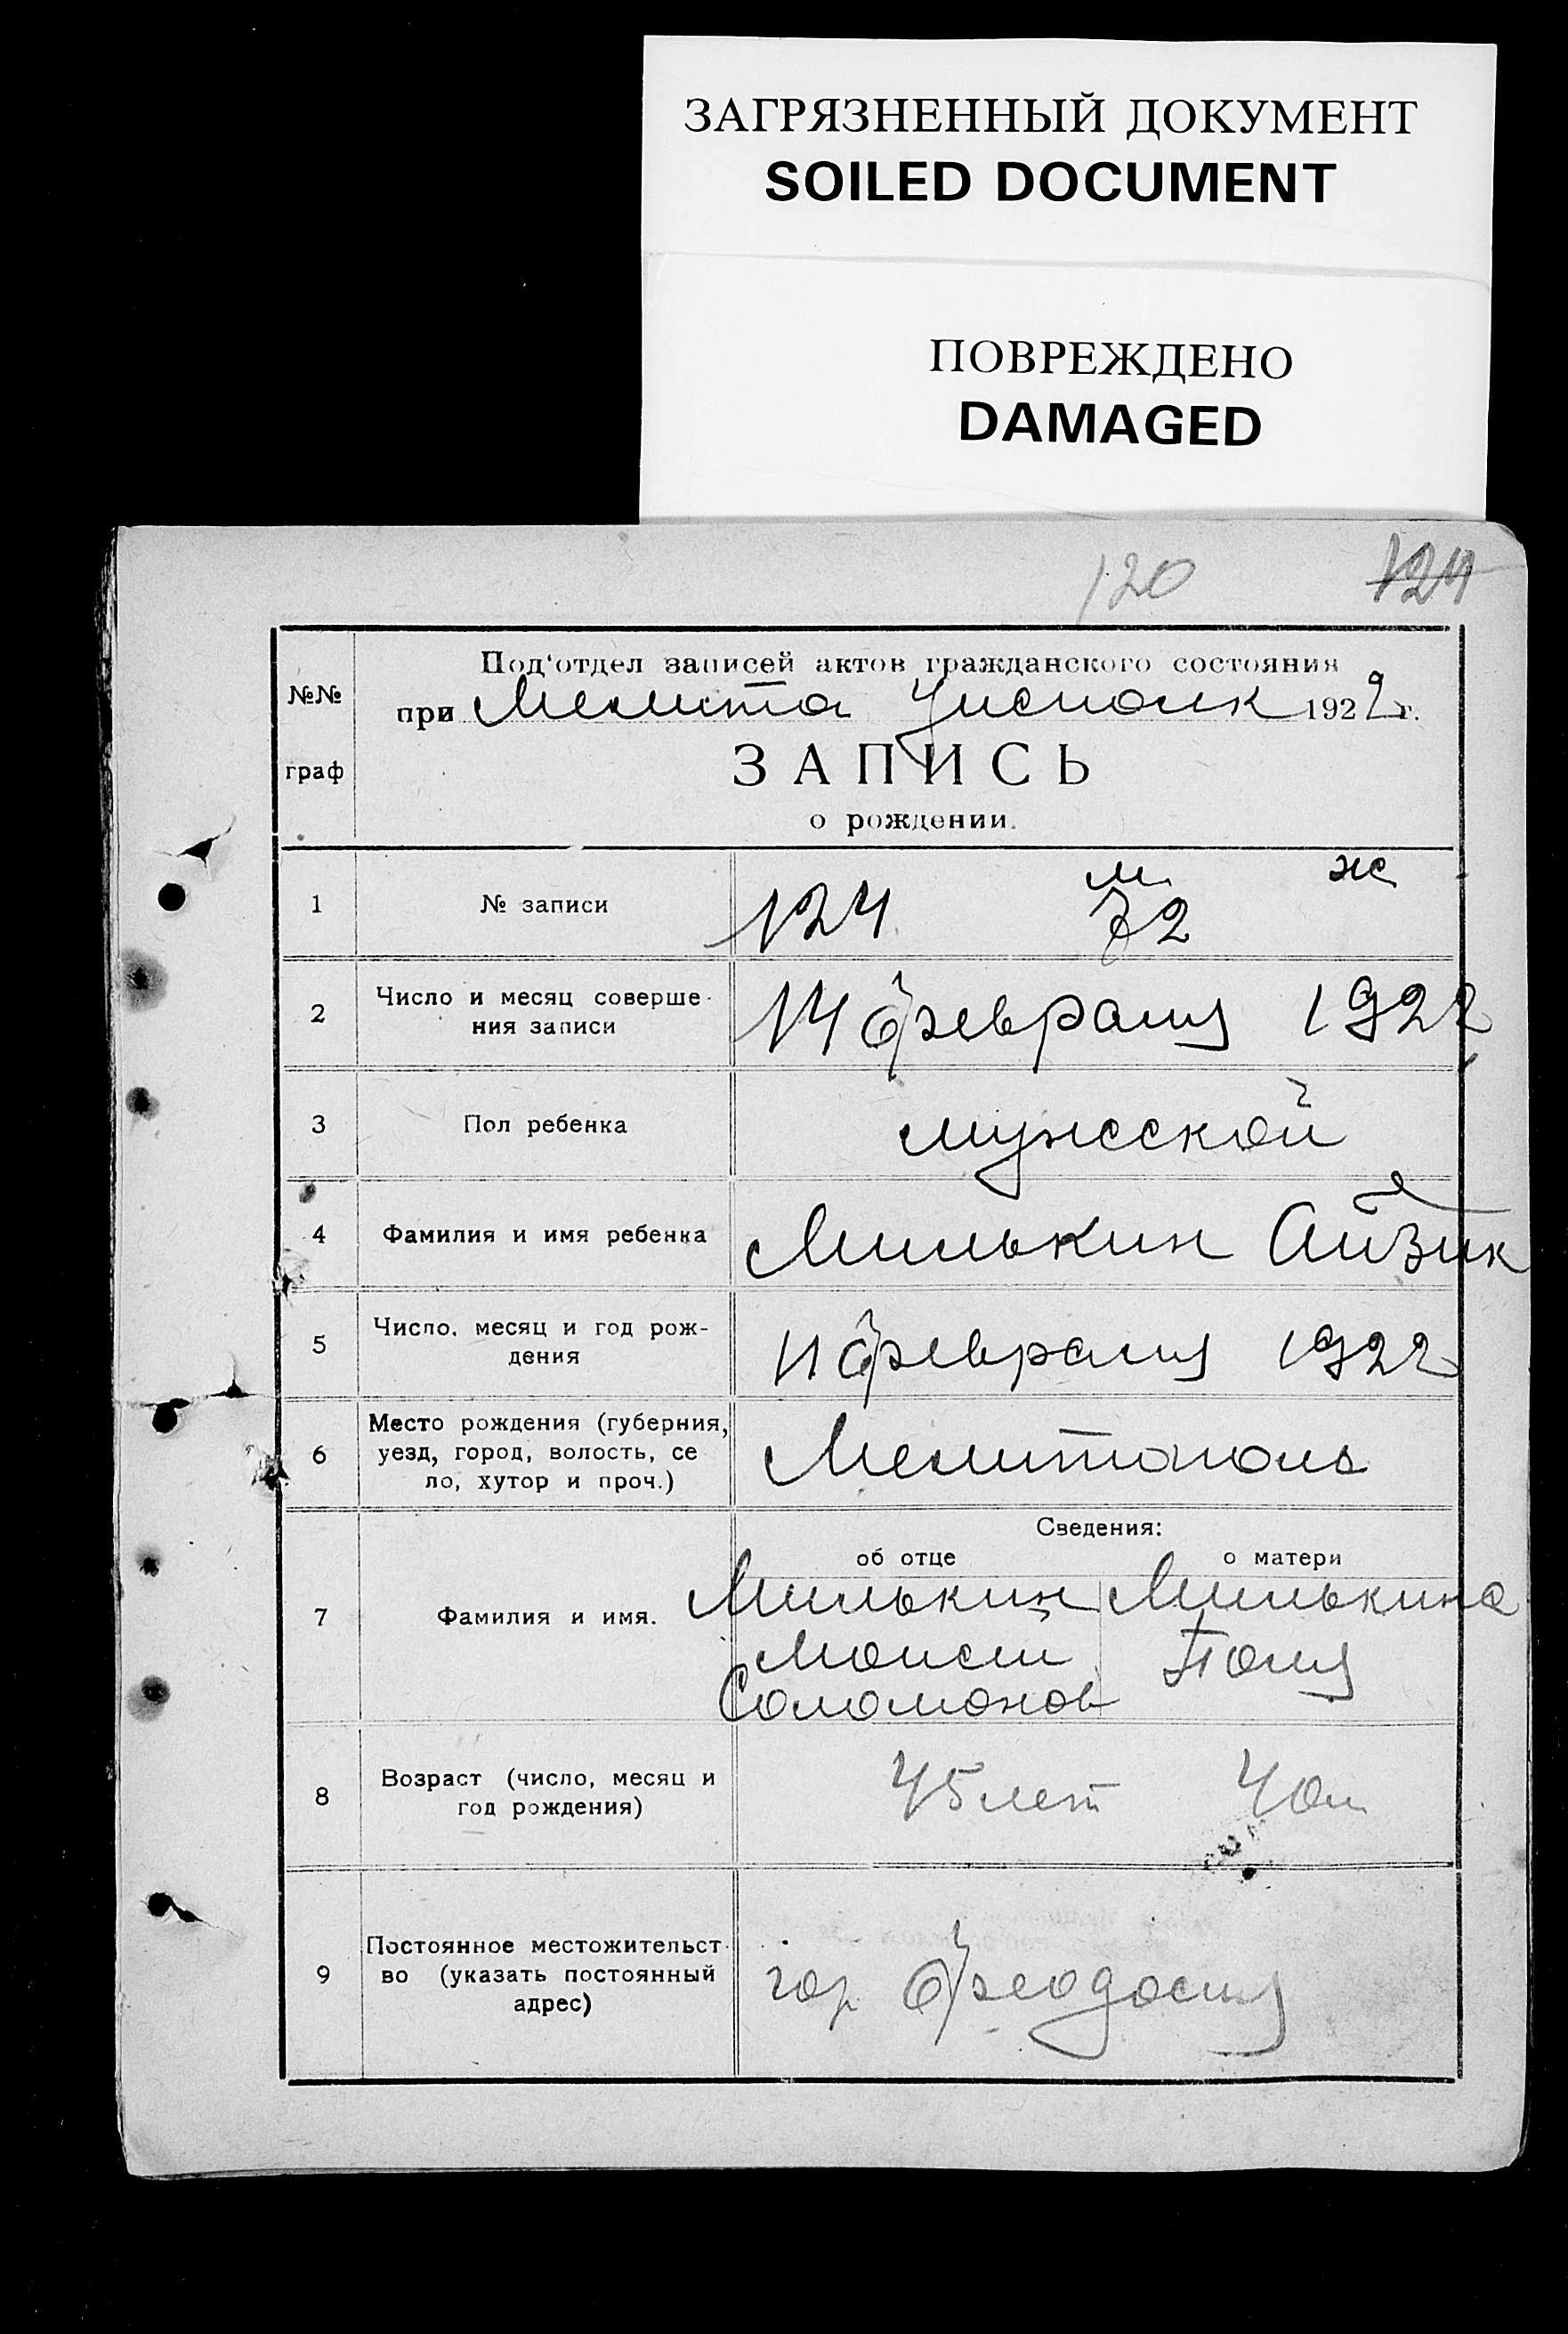 ЗАГРЯЗНЕННЫЙ ДОКУМЕНТ
SOILED DOCUMENT
ПОВРЕЖДЕНО
DAMAGED
120 124
Под'отдел записей актов гражданского состояния
№№
при Мелитоп Уисполк 1922 г.
граф
ЗАПИСЬ
о рождении.
м ж
1 № записи 124 72
2 Число и месяц соверше-
ния записи
14 февраля 1922
3 Пол ребенка мужской
4 Фамилия и имя ребенка Милькин Айзик
5 Число, месяц и год рож-
дения
11 февраля 1922
6 Место рождения (губерния,
уезд, город, волость, се
ло, хутор и проч.)
Мелитополь
Сведения:
об отце о матери
7 Фамилия и имя. Милькин Милькина
Моисей Поля
Соломонов
8 Возраст (число, месяц и
год рождения)
45 лет 40 л
9 Постоянное местожительст-
во (указать постоянный
адрес)
гор Феодосия